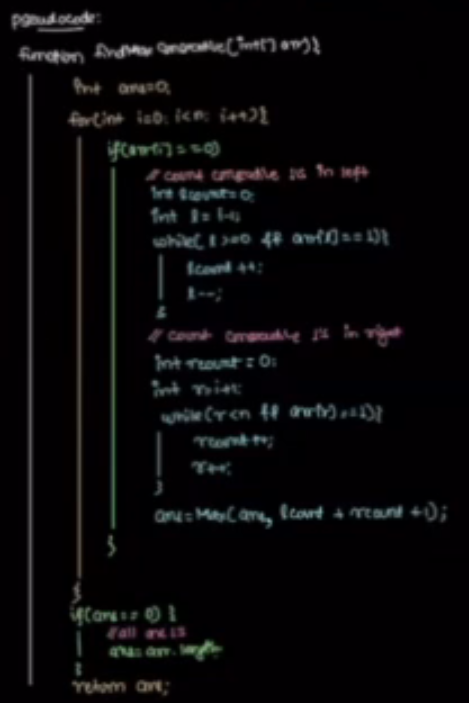 pseudocode:
function findMax consecutive(int[] arr){
int ans=0;
for(int i=0; i<n; i++){
if(arr[i]==0)
// count consecutive 1s in left
int lcount=0;
int l=i-1;
while(l>=0 && arr[l]==1){
lcount++;
l--;
}
// count consecutive 1s in right
int rcount=0;
int r=i+1;
while(r<n && arr[r]==1){
rcount++;
r++;
}
ans=Max(ans, lcount + rcount +1);
}
}
if(ans==0) {
//all are 1s
ans=arr.length
}
return ans;